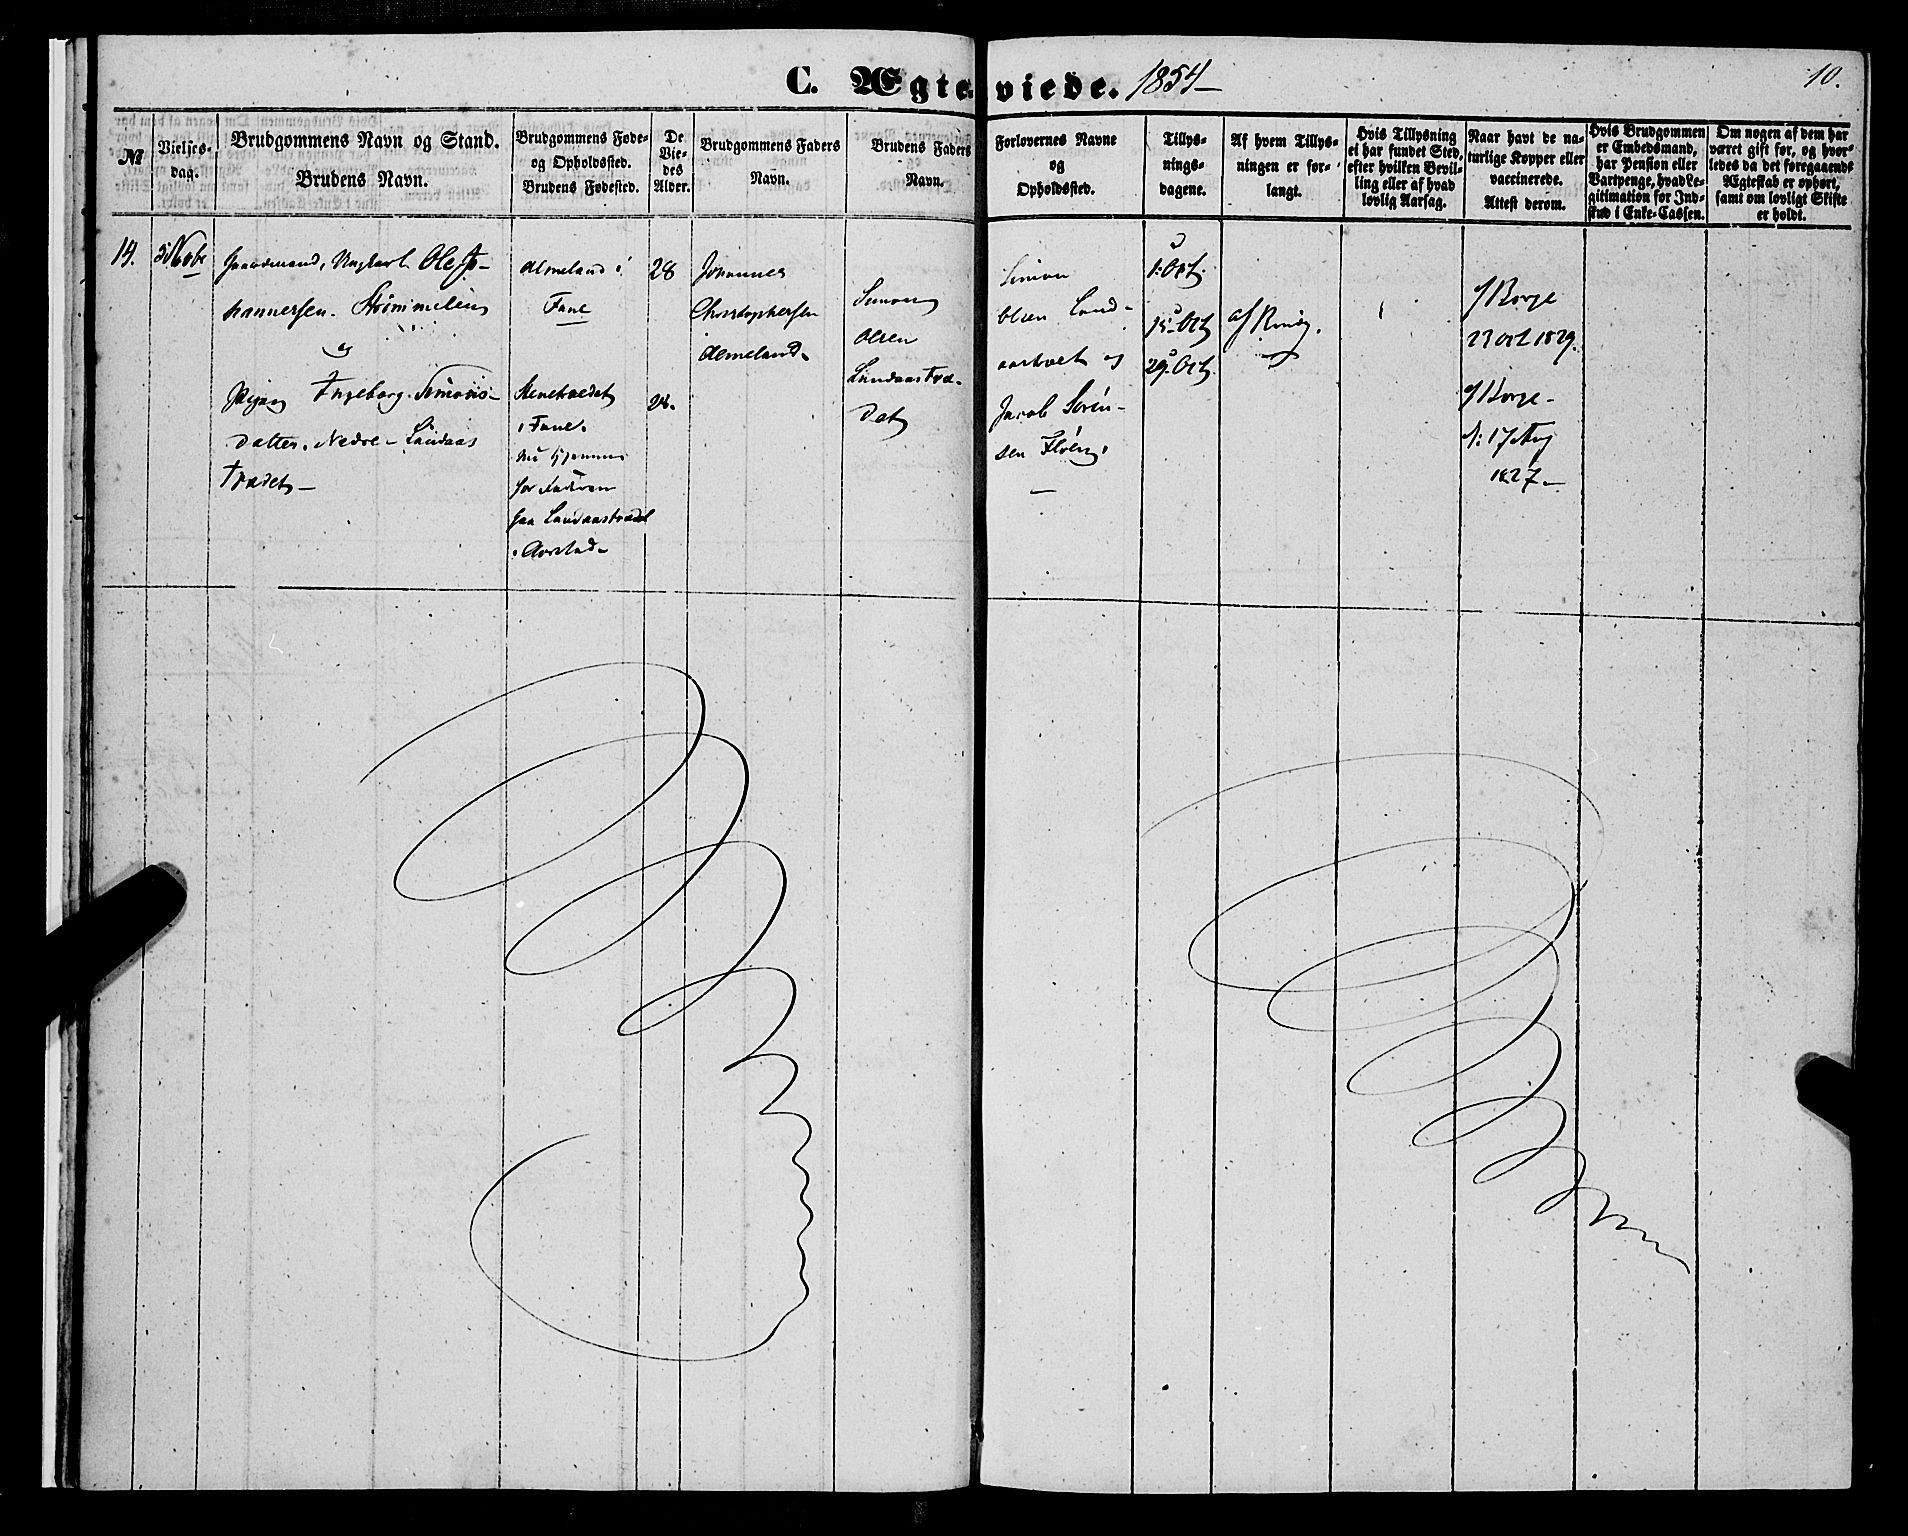 C. Ægteviede. 1854
10.
№
Vielses-
dag.
Brudgommens Navn og Stand.
Brudens Navn.
Brudgommens Føde-
og Opholdssted.
Brudens Fødested.
De
Vie-
des
Alder.
Brudgommens Faders
Navn.
Brudens Faders
Navn.
Forlovernes Navne
og
Opholdssted.
Tillys-
nings-
dagene.
Af hvem Tillys-
ningen er for-
langt.
Hvis Tillysning
ei har fundet Sted,
efter hvilken Bevil-
ling eller af hvad
lovlig Aarsag.
Naar havt de na-
turlige Kopper eller
vaccinerede.
Attest derom.
Hvis Brudgommen
er Embedsmand,
har Pension eller
Vartpenge, hvad Le-
gitimation for Ind-
skud i Enke-Cassen.
Om nogen af dem har
været gift før, og hvor-
ledes da det foregaaende
Ægteskab er ophørt,
samt om lovligt Skifte
er holdt.
Ungkarl Ole Jo-
hannessen
og
Pigen Ingeborg Simons-
datter. Nedre Landaas
Trædet
i
Fane
i Fane.
nu hjemme
paa Landaastrædet
i Aarstad
28
28.
Johannes
Christophersen
Simon
Olsen
Landaastræ-
det
Simon
Olsen Land-
og
Jacob Sørén-
sen Fløen,
1. Oct.
15. Oct
29. Oct.
23 Oct 1829.
17 Aug
1827